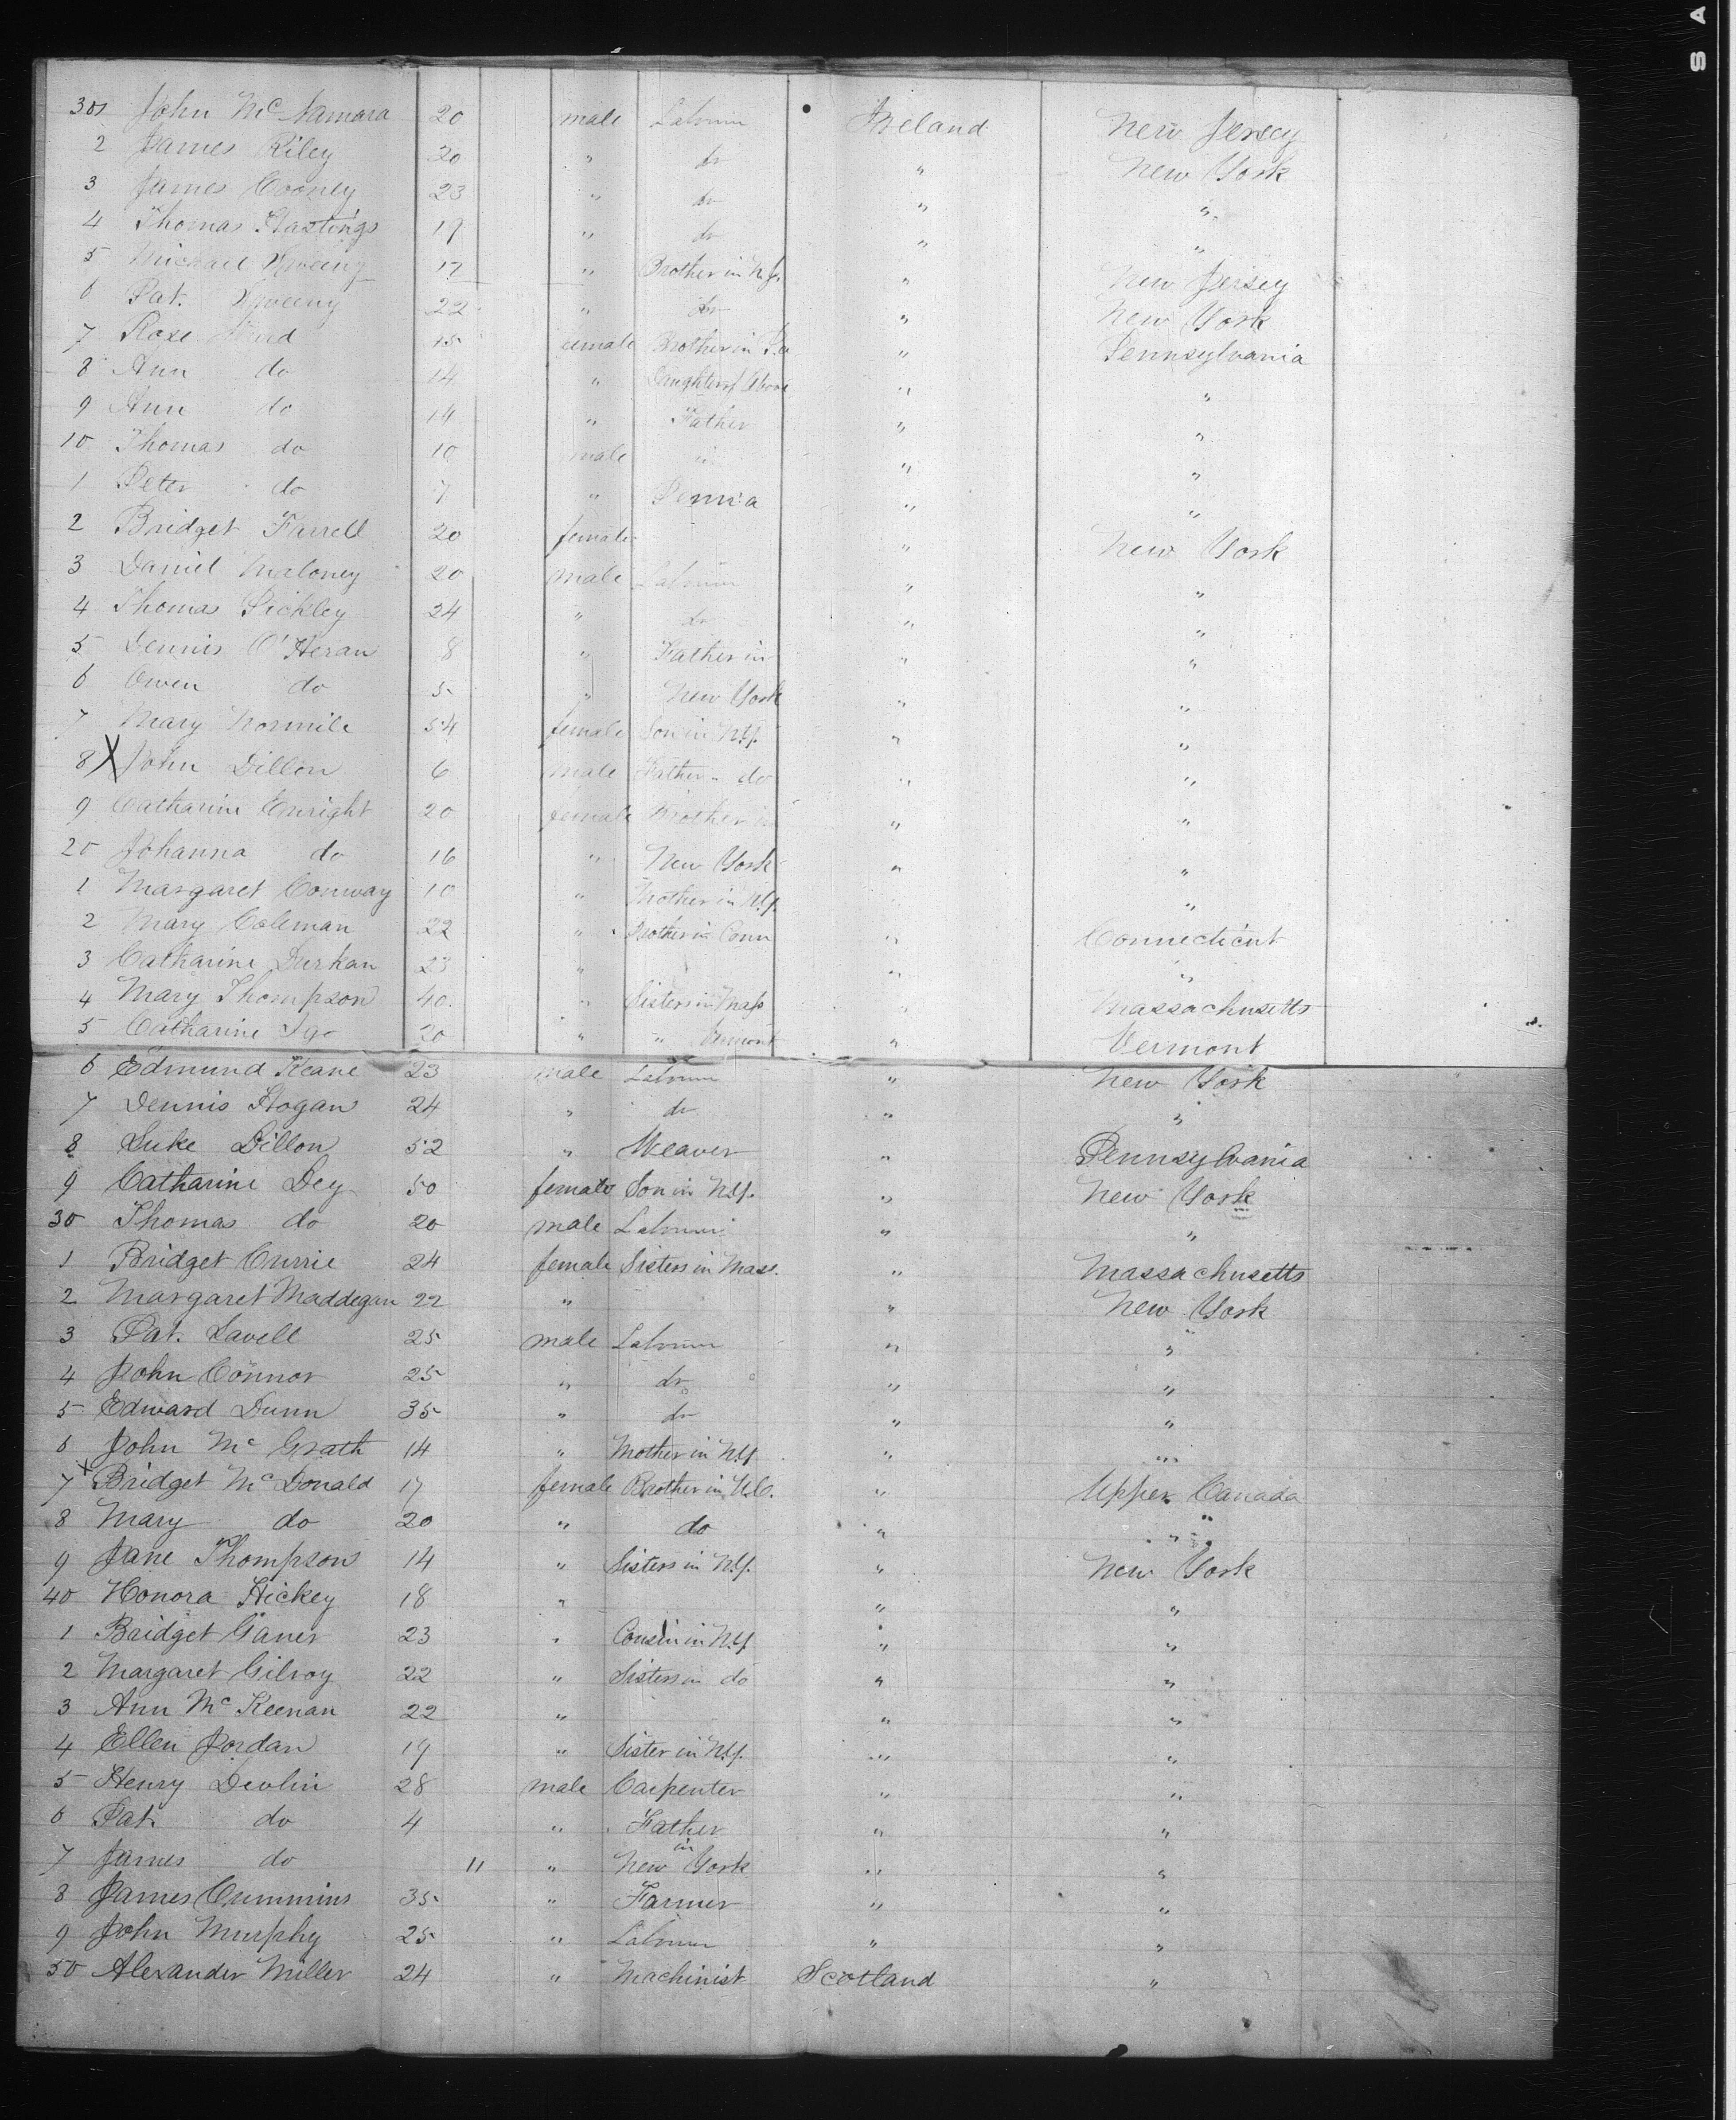 301 John McNamara 20 male Labourer Ireland New Jersey
2 James Riley 20 " do " New York
3 James Cooney 23 " do " "
4 Thomas Hastings 19 " do " "
5 Michael Sweeny 17 " Brother in N.J. " New Jersey
6 Pat. Sweeny 22 " do " New York
7 Rose 15 female Brother in Pa " Pennsylvania
8 Ann do 14 " Daughter of Above " "
9 Ann do 14 " Father " "
10 Thomas do 10 male " " "
1 Peter do 7 " " "
2 Bridget Farrell 20 female " New York
3 Daniel Maloney 20 male Labourer " "
4 Thomas Pickley 24 " do " "
5 Dennis O'Heran 8 " Father in " "
6 Owen do 5 " New York " "
7 Mary Normile 54 female Son in N.Y. " "
8 X John Dillon 6 male Father " do " "
9 Catharine Enright 20 female Brother in " "
20 Johanna do 16 " New York " "
1 Margaret Conway 10 " Mother in N.Y. "
2 Mary Coleman 22 " Brother in Conn " Connecticut
3 Catharine Durkan 23 " " "
4 Mary Thompson 40 " Sisters in Mass " Massachusetts
5 Catharine Igo 20 " " Vermont " Vermont
6 Edmund Keane 23 male Labourer " New York
7 Dennis Hogan 24 " do " "
8 Luke Dillon 52 " Weaver " Pennsylvania
9 Catharine Dey 50 female Son in N.Y. " New York
30 Thomas do 20 male Labourer " "
1 Bridget Currie 24 female Sisters in Mass. " Massachusetts
2 Margaret Maddegan 22 " " New York
3 Pat. Lavell 25 male Labourer " "
4 John Connor 25 " do " "
5 Edward Dunn 35 " do " "
6 John McGrath 14 " Mother in N.Y. " "
7 x Bridget McDonald 17 female Brother in U.C. " Upper Canada
8 Mary do 20 " do " "
9 Jane Thompson 14 " Sisters in N.Y. " New York
40 Honora Hickey 18 " " "
1 Bridget Ganer 23 " Cousin in N.Y. " "
2 Margaret Gilroy 22 " Sisters in do " "
3 Ann McKeenan 22 " " "
4 Ellen Jordan 19 " Sister in N.Y. " "
5 Henry Devlin 28 male Carpenter " "
6 Pat. do 4 " Father " "
7 James do 11 " in New York " "
8 James Cummins 35 " Farmer " "
9 John Murphy 25 " Labourer " "
50 Alexander Miller 24 " Machinist Scotland "
S A